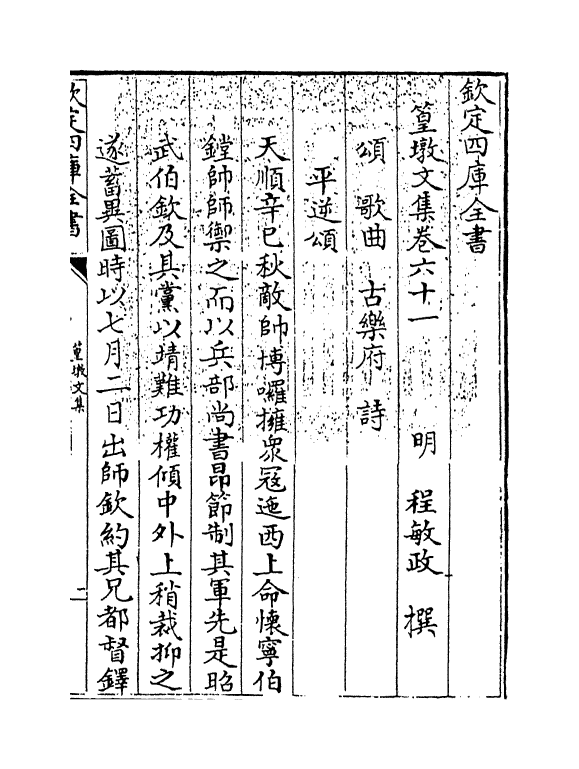 欽定四庫全書
篁墩文集卷六十一
明 程敏政 撰
頌 歌曲 古樂府 詩
平逆頌
天順辛巳秋敵帥博囉擁衆寇迤西上命懷寧伯
鏜帥師禦之而以兵部尚書昂節制其軍先是昭
武伯欽及其黨以靖難功權傾中外上稍裁抑之
遂蓄異圖時以七月二日出師欽約其兄都督鐸
欽定四庫全書
篁墩文集